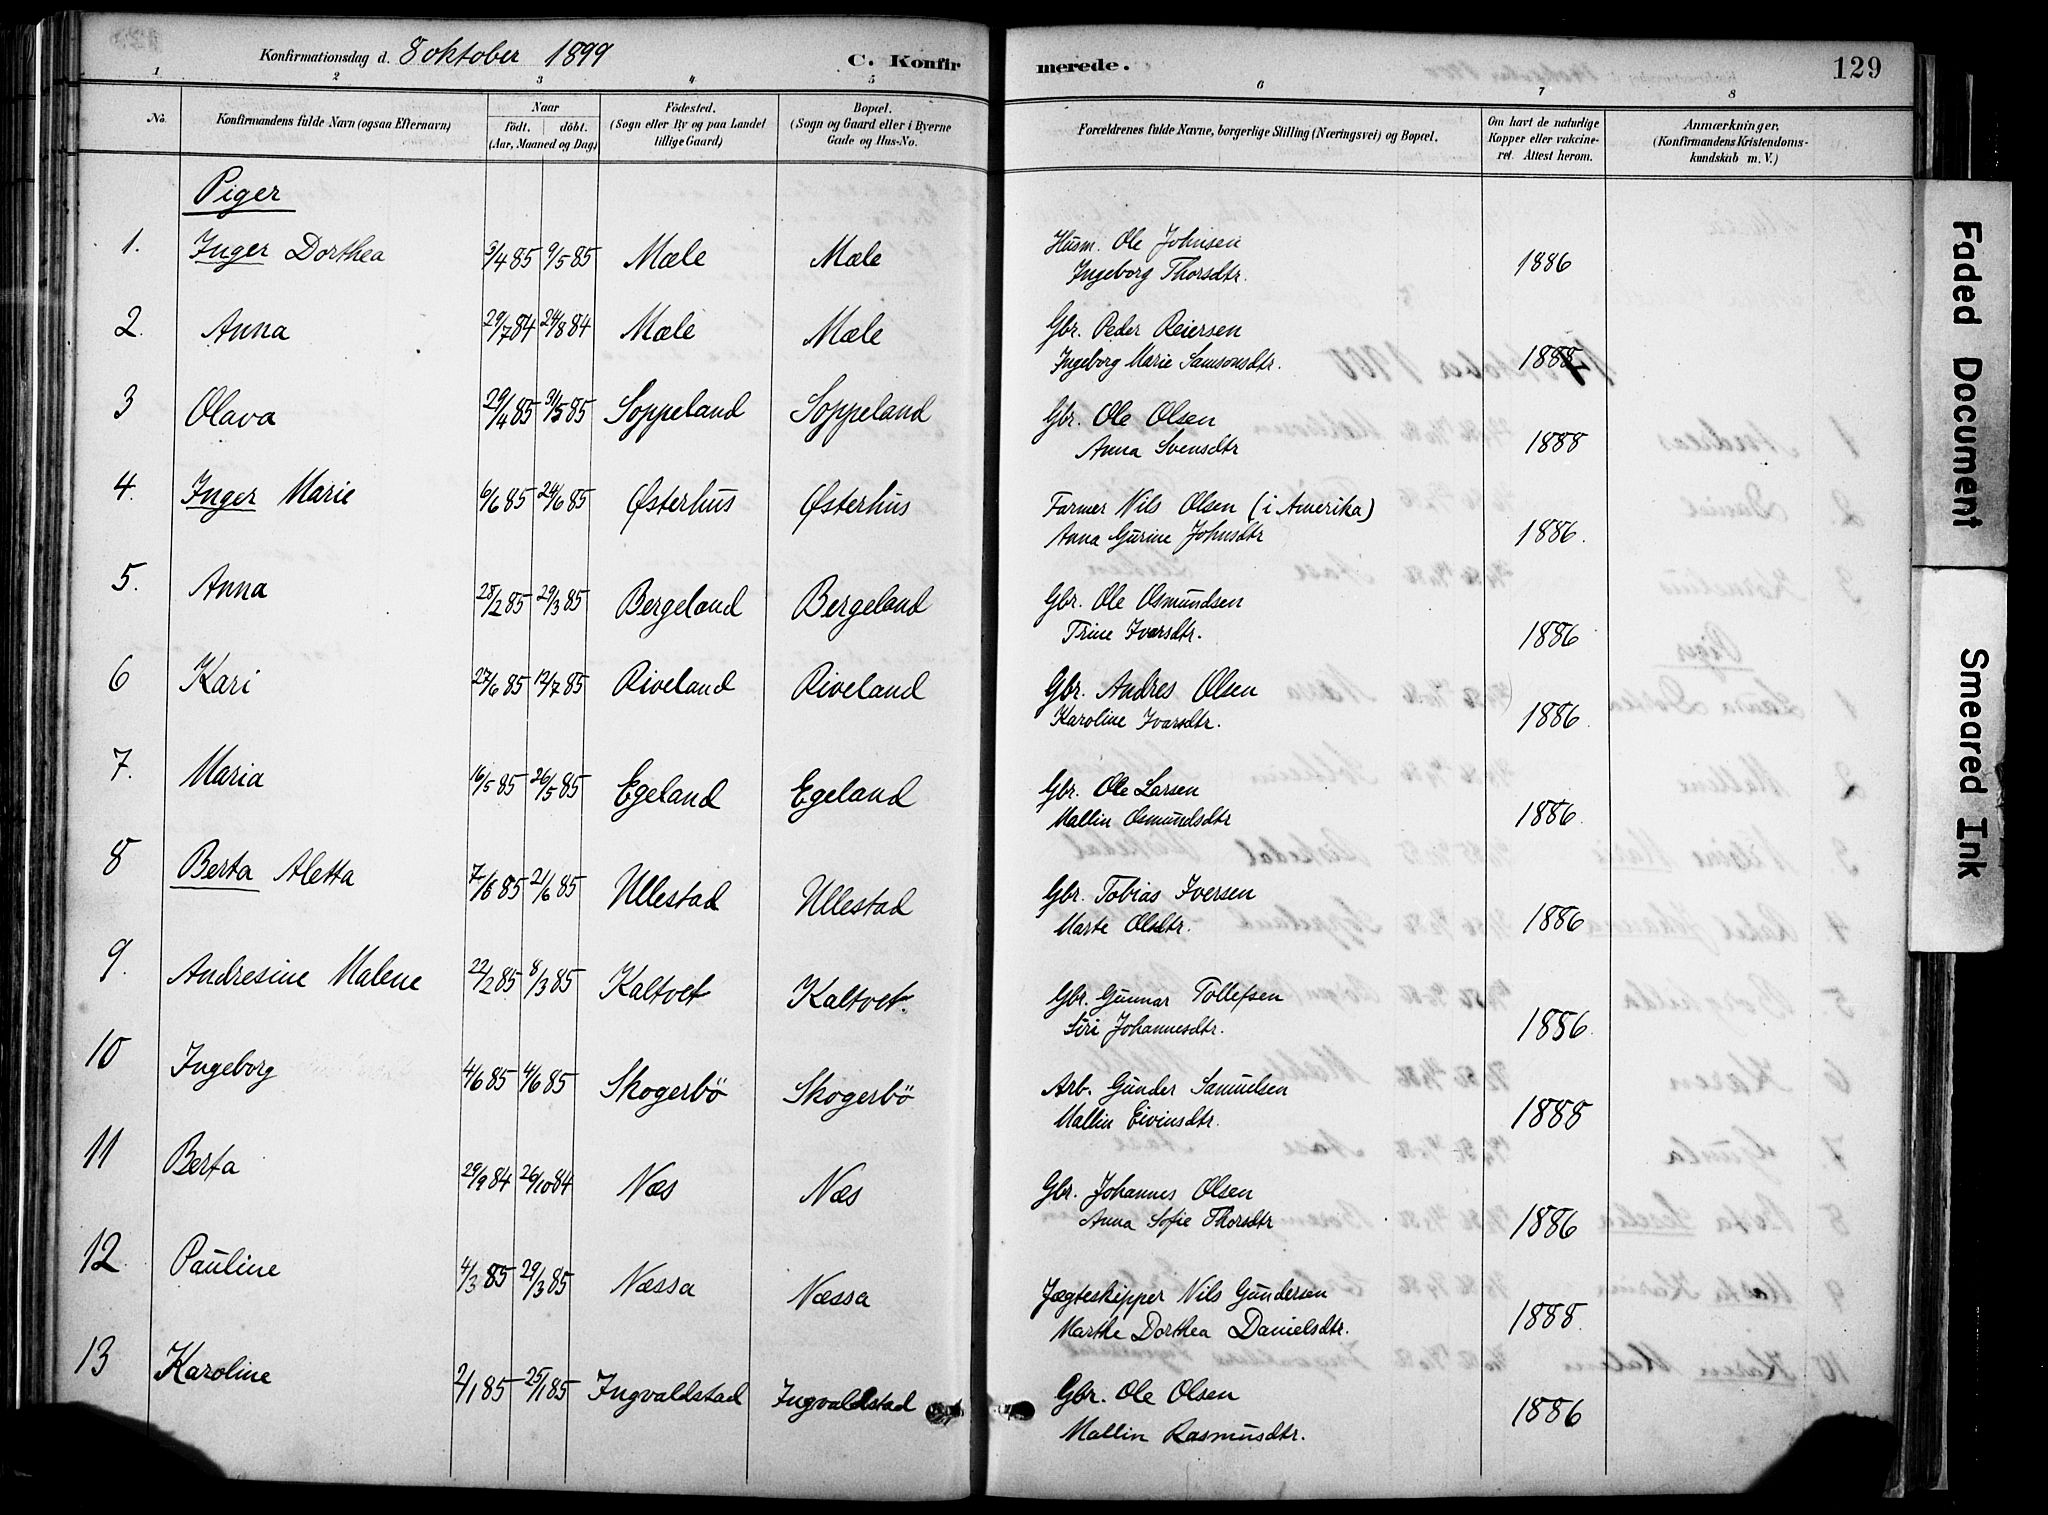 Konfirmationsdag d. 8 oktober 1899
C. Konfirmerede.
129
1 2 3 4 5 6 7 8
No.
Konfirmandens fulde Navn (ogsaa Efternavn)
Naar
födt. döbt.
(Aar, Maaned og Dag)
Födested.
(Sogn eller By og paa Landet
tillige Gaard)
Bopæl.
(Sogn og Gaard eller i Byerne
Gade og Hus-No.
Forældrenes fulde Navne, borgerlige Stilling (Næringsvei) og Bopæl.
Om havt de naturlige
Kopper eller vakcine-
ret. Attest herom.
Anmærkninger.
(Konfirmandens Kristendoms-
kundskab m. V.)
Piger
1. Inger Dorthea 3/4 85 9/5 85 Mæle Mæle Husm. Ole Johnsen
Ingeborg Thorsdtr. 1886
2. Anna 29/7 84 24/8 84 Mæle Mæle Gbr. Peder Reiersen
Ingeborg Marie Samsonsdtr. 1887
3 Olava 29/4 85 31/5 85 Soppeland Soppeland Gbr. Ole Olsen
Anna Svensdtr 1888
4. Inger Marie 6/6 85 24/6 85 Østerhus Østerhus Farmer Nils Olsen (i Amerika)
Anna Gurine Johnsdtr 1886.
5. Anna 28/2 85 29/3 85 Bergeland Bergeland Gbr. Ole Osmundsen
Trine Ivarsdtr. 1886
6 Kari 27/6 85 12/7 85 Riveland Riveland Gbr. Andres Olsen
Karoline Ivarsdtr. 1886.
7. Maria 16/5 85 26/5 85 Egeland Egeland Gbr. Ole Larsen
Mallin Osmundsdtr 1886.
8 Berta Aletta 7/6 85 21/6 85 Ullestad Ullestad Gbr. Tobias Iversen
Marte Olsdtr. 1886
9. Andresine Malene 22/2 85 8/3 85 Kaltvet Kaltvet. Gbr. Gunnar Tollefsen
Siri Johannesdtr. 1886.
10 Ingeborg 4/6 85 4/6 85 Skogerbö Skogerbö Arb. Gunder Samuelsen
Mallin Eivinsdtr. 1888
11 Berta 29/9 84 26/10 84 Næs Næs Gbr. Johannes Olsen
Anna Sofie Thorsdtr 1886
12. Pauline 4/3 85 29/3 85 Næssa Næssa Jægteskipper Nils Gundersen
Marthe Dorthea Danielsdtr. 1888
13 Karoline 2/1 85 25/1 85 Ingvaldstad Ingvaldstad Gbr. Ole Olsen
Mallin Rasmusdtr. 1886
Faded Document
Smeared Ink